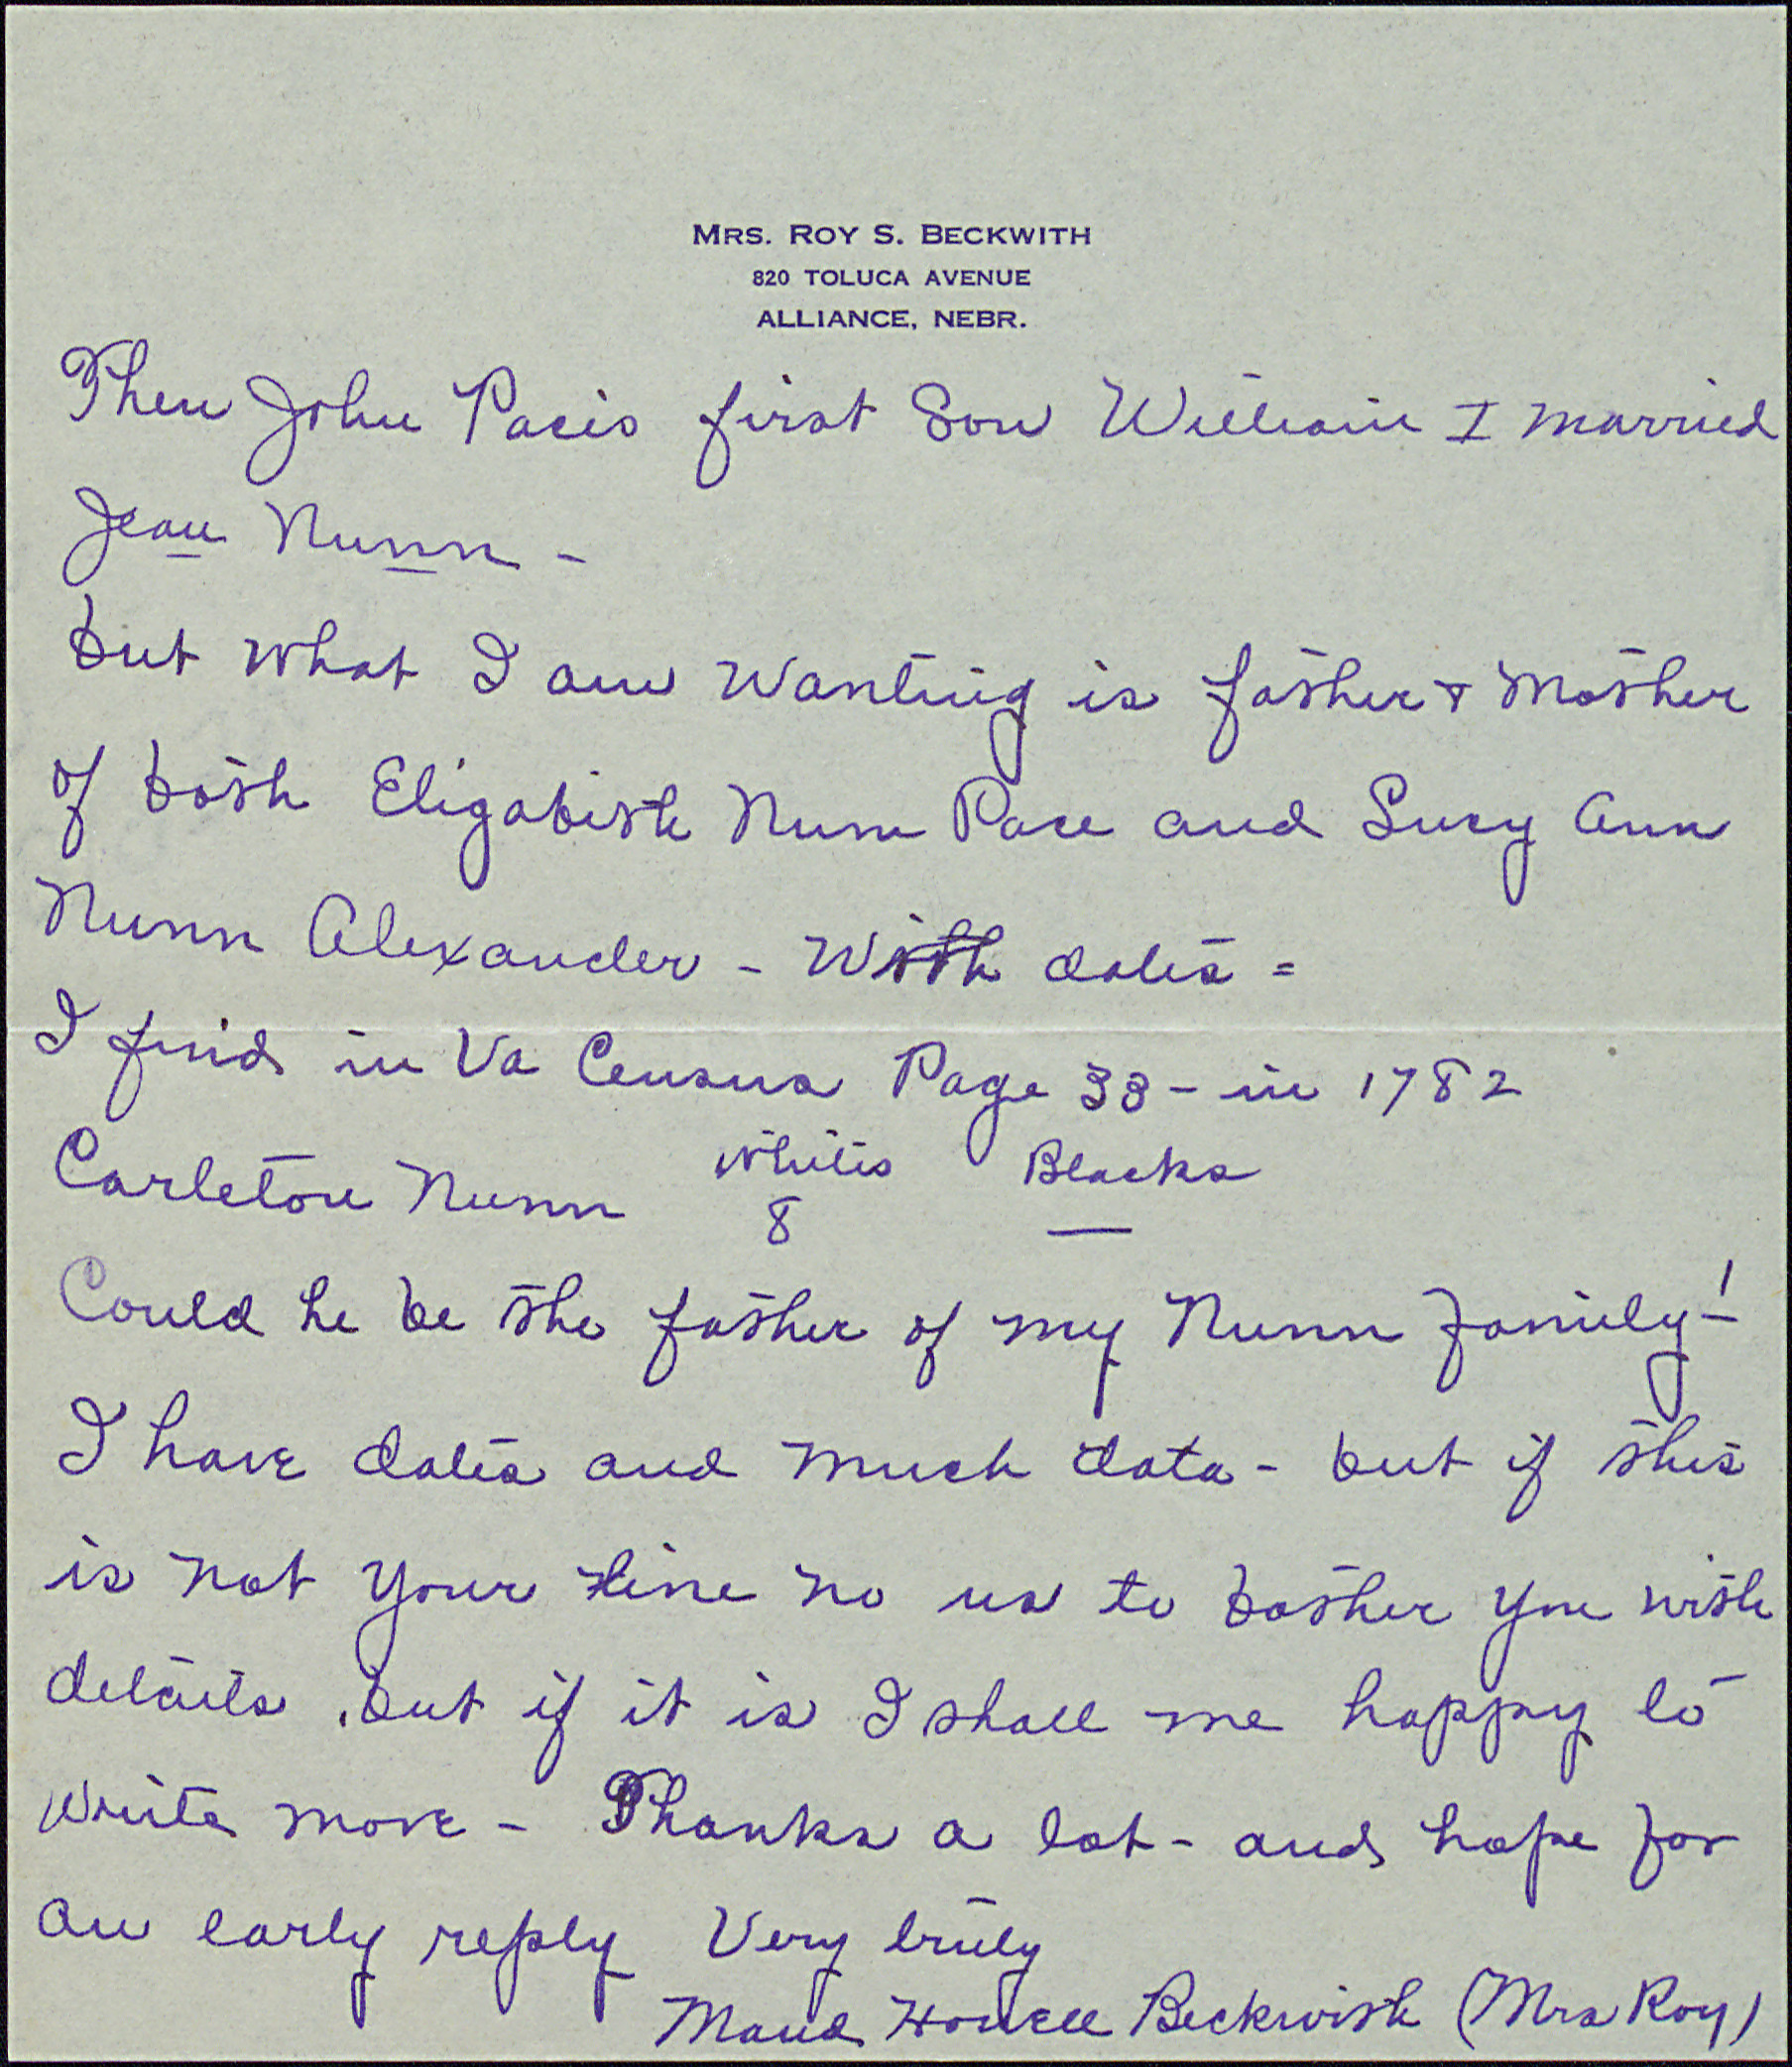 MRS. ROY S. BECKWITH
820 TOLUCA AVENUE
ALLIANCE, NEBR.
Then John Paces first Son William I married
Jean Nunn -
but what I am wanting is father + Mother
of both Elizabeth Nunn Pace and Lucy Ann
Nunn Alexander - With dates =
I find in Va Census Page 33 - in 1782
Whites Blacks
Carleton Nunn 8 —
Could he be the father of my Nunn family - !
I have dates and much data - but if this
is not your line no us to bother you with
details, but if it is I shall me happy to
write more - Thanks a lot - and hope for
an early reply Very truly
Maud Howell Beckwith (Mrs Roy)